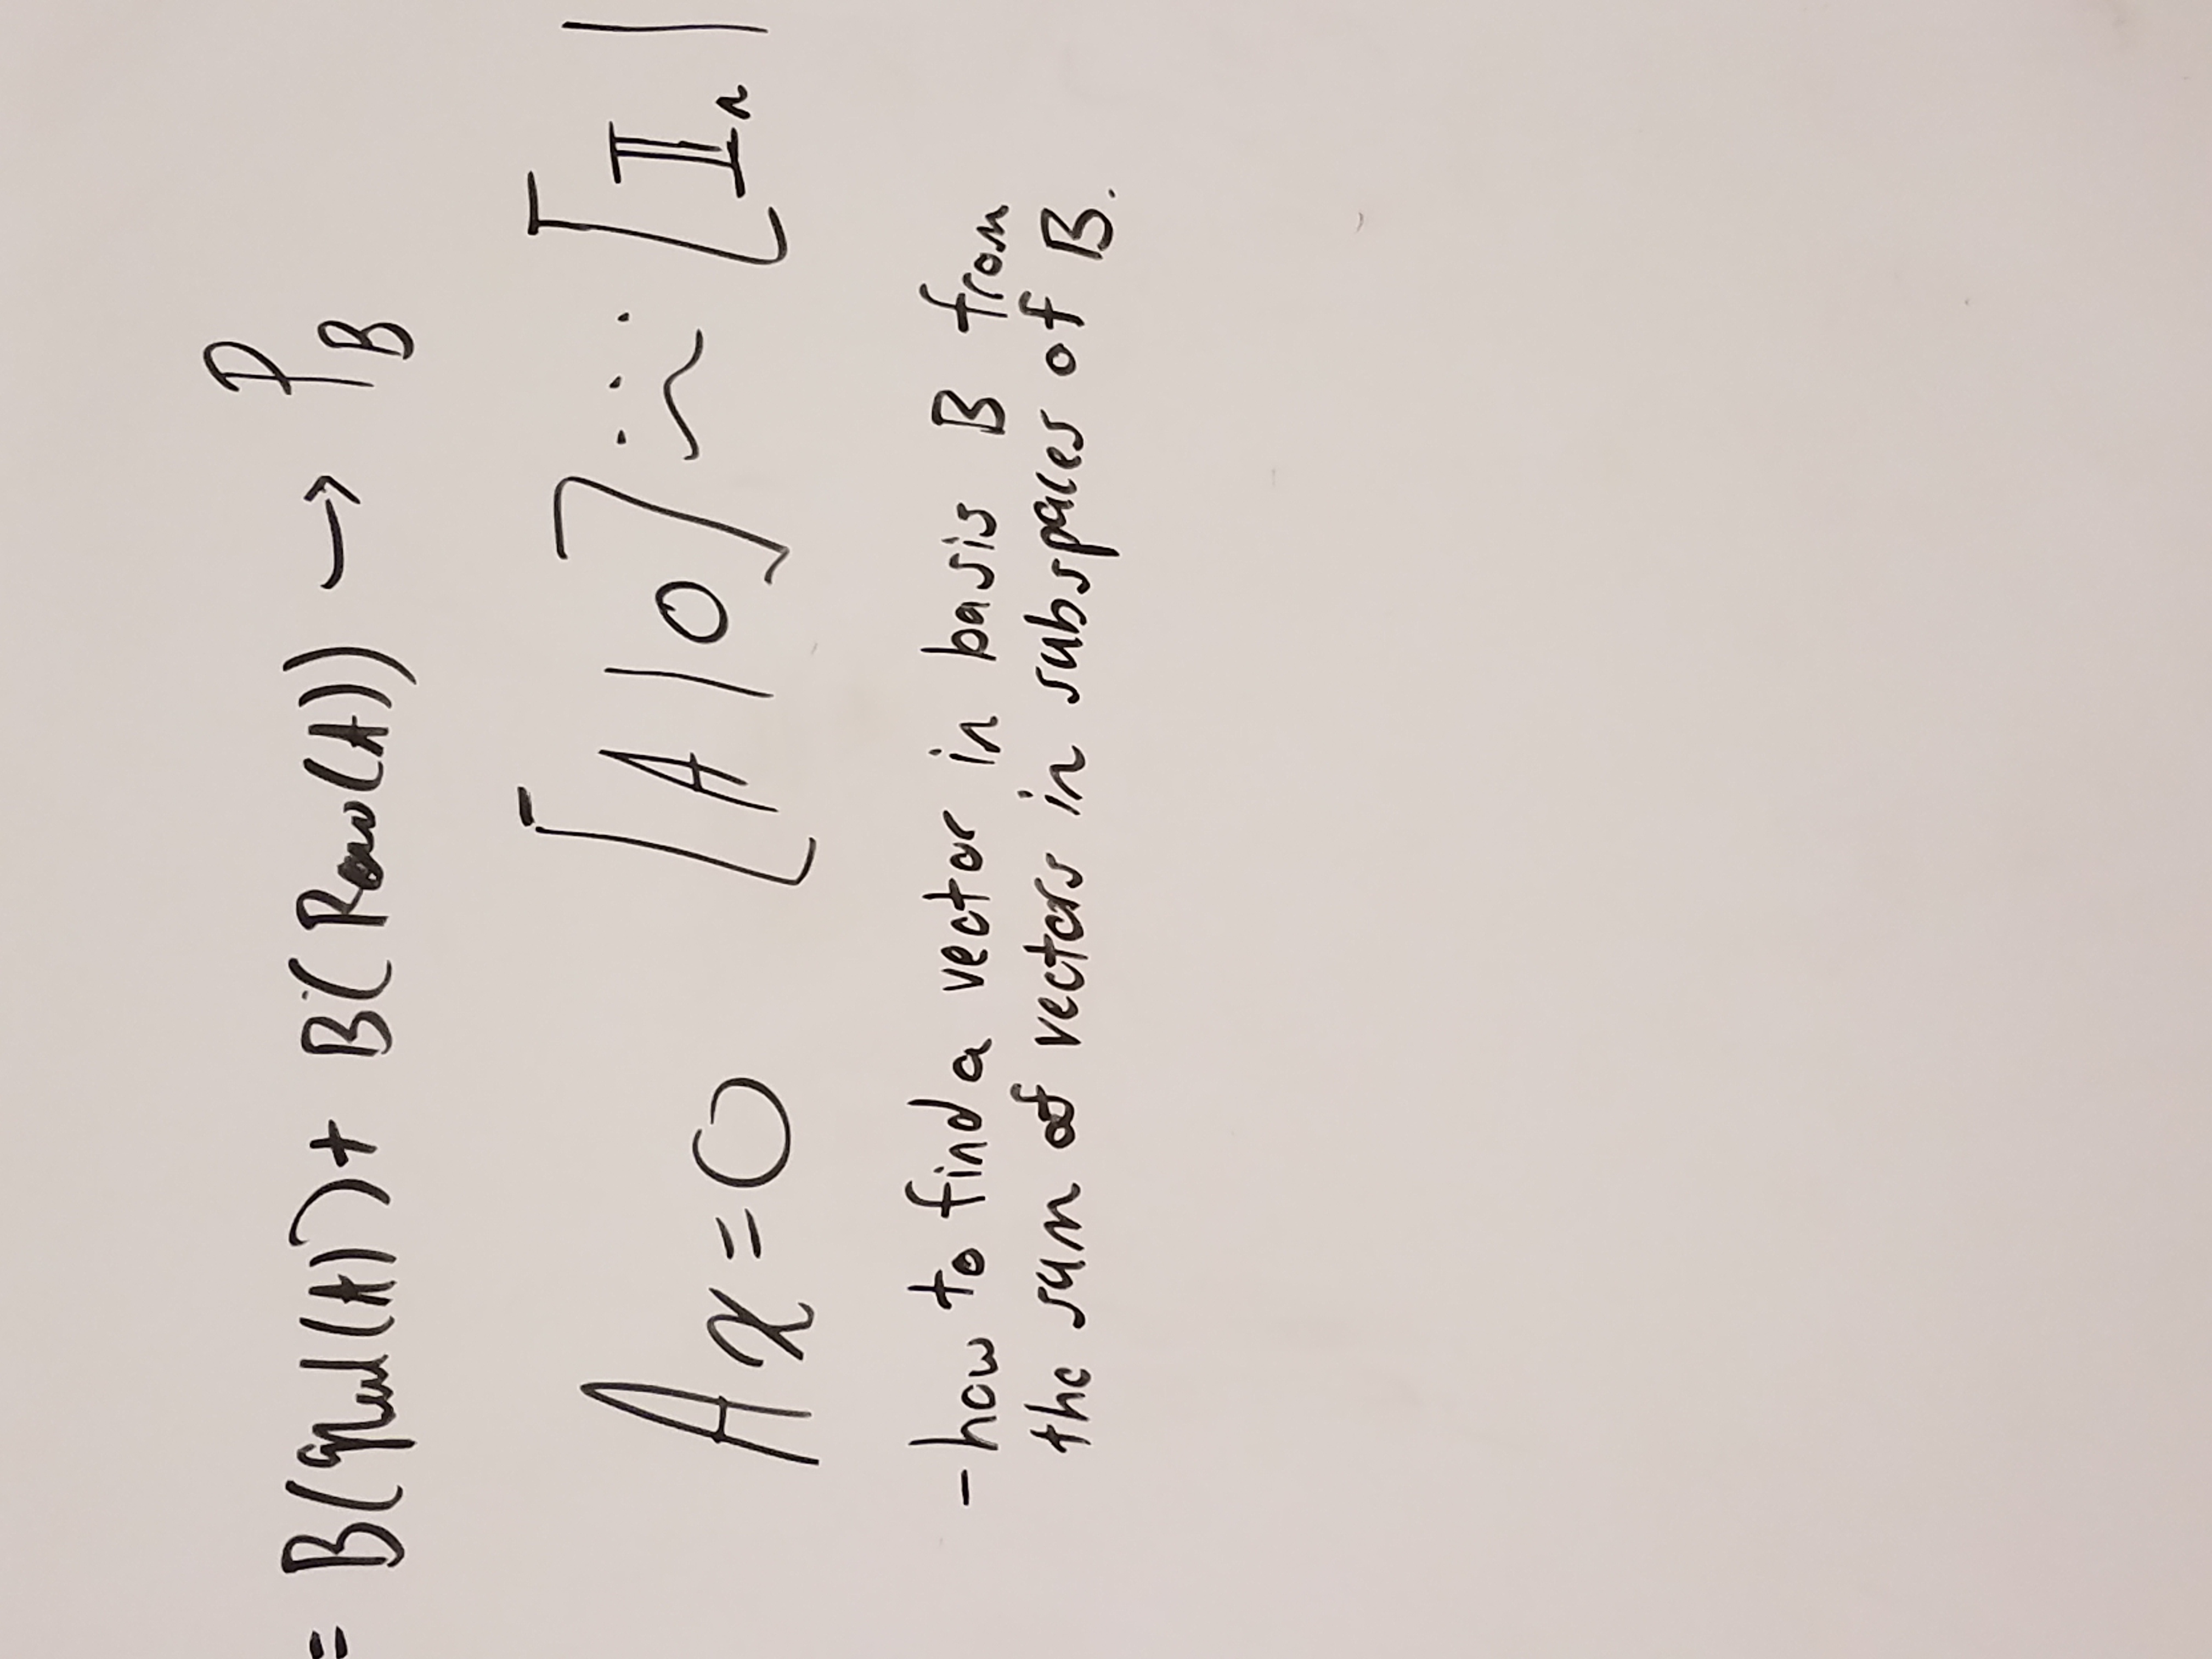 = B(Nul(A)) + B(Row(A)) → P_B
Ax=0 [A|0] ∴ ~ [I_n|
-how to find a vector in basis B from
the sum of vectors in subspaces of B.